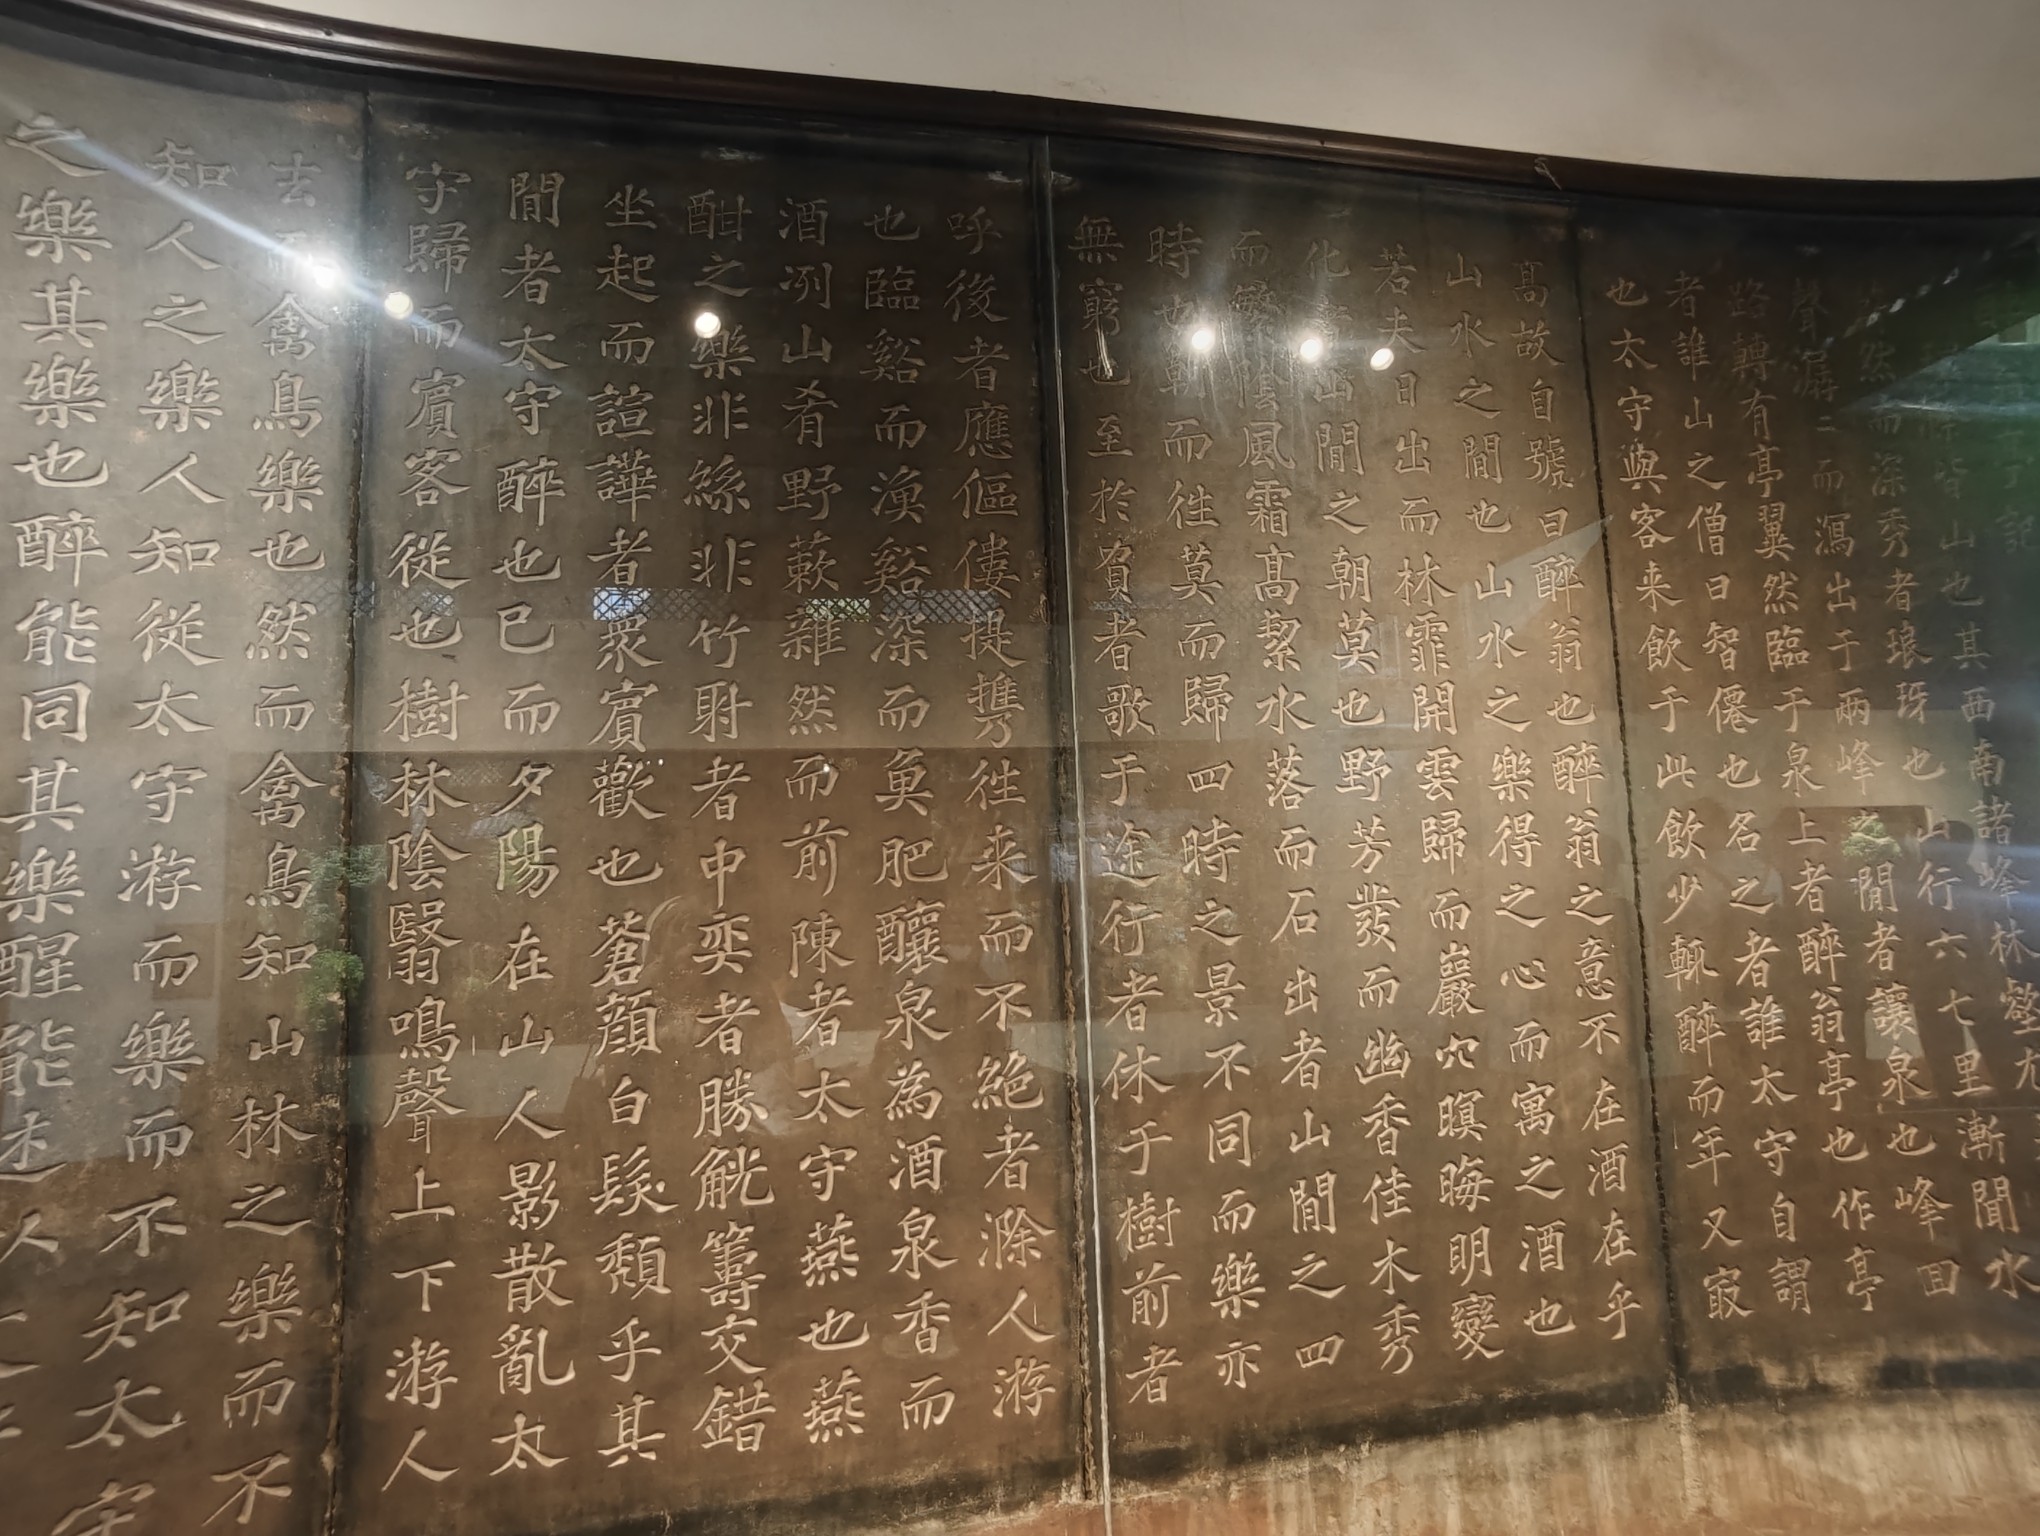 記
滁皆山也其西南諸峰林壑尤
然而深秀者琅玡也山行六七里漸聞水
聲潺二而瀉出于兩峰之間者讓泉也峰回
路轉有亭翼然臨于泉上者醉翁亭也作亭
者誰山之僧曰智僊也名之者誰太守自謂
也太守與客来飲于此飲少輒醉而年又㝡
高故自號曰醉翁也醉翁之意不在酒在乎
山水之間也山水之樂得之心而寓之酒也
若夫日出而林霏開雲歸而巖穴暝晦明變
化者山間之朝莫也野芳發而幽香佳木秀
而繁陰風霜高絜水落而石出者山間之四
時也朝而往莫而歸四時之景不同而樂亦
無窮也至於負者歌于途行者休于樹前者
呼後者應傴僂提攜往来而不絕者滁人游
也臨谿而漁谿深而魚肥釀泉為酒泉香而
酒洌山肴野蔌雜然而前陳者太守燕也燕
酣之樂非絲非竹射者中弈者勝觥籌交錯
坐起而諠譁者衆賓歡也蒼顏白髮頹乎其
間者太守醉也已而夕陽在山人影散亂太
守歸而賓客從也樹林陰翳鳴聲上下游人
去而禽鳥樂也然而禽鳥知山林之樂而不
知人之樂人知從太守游而樂而不知太守
之樂其樂也醉能同其樂醒能